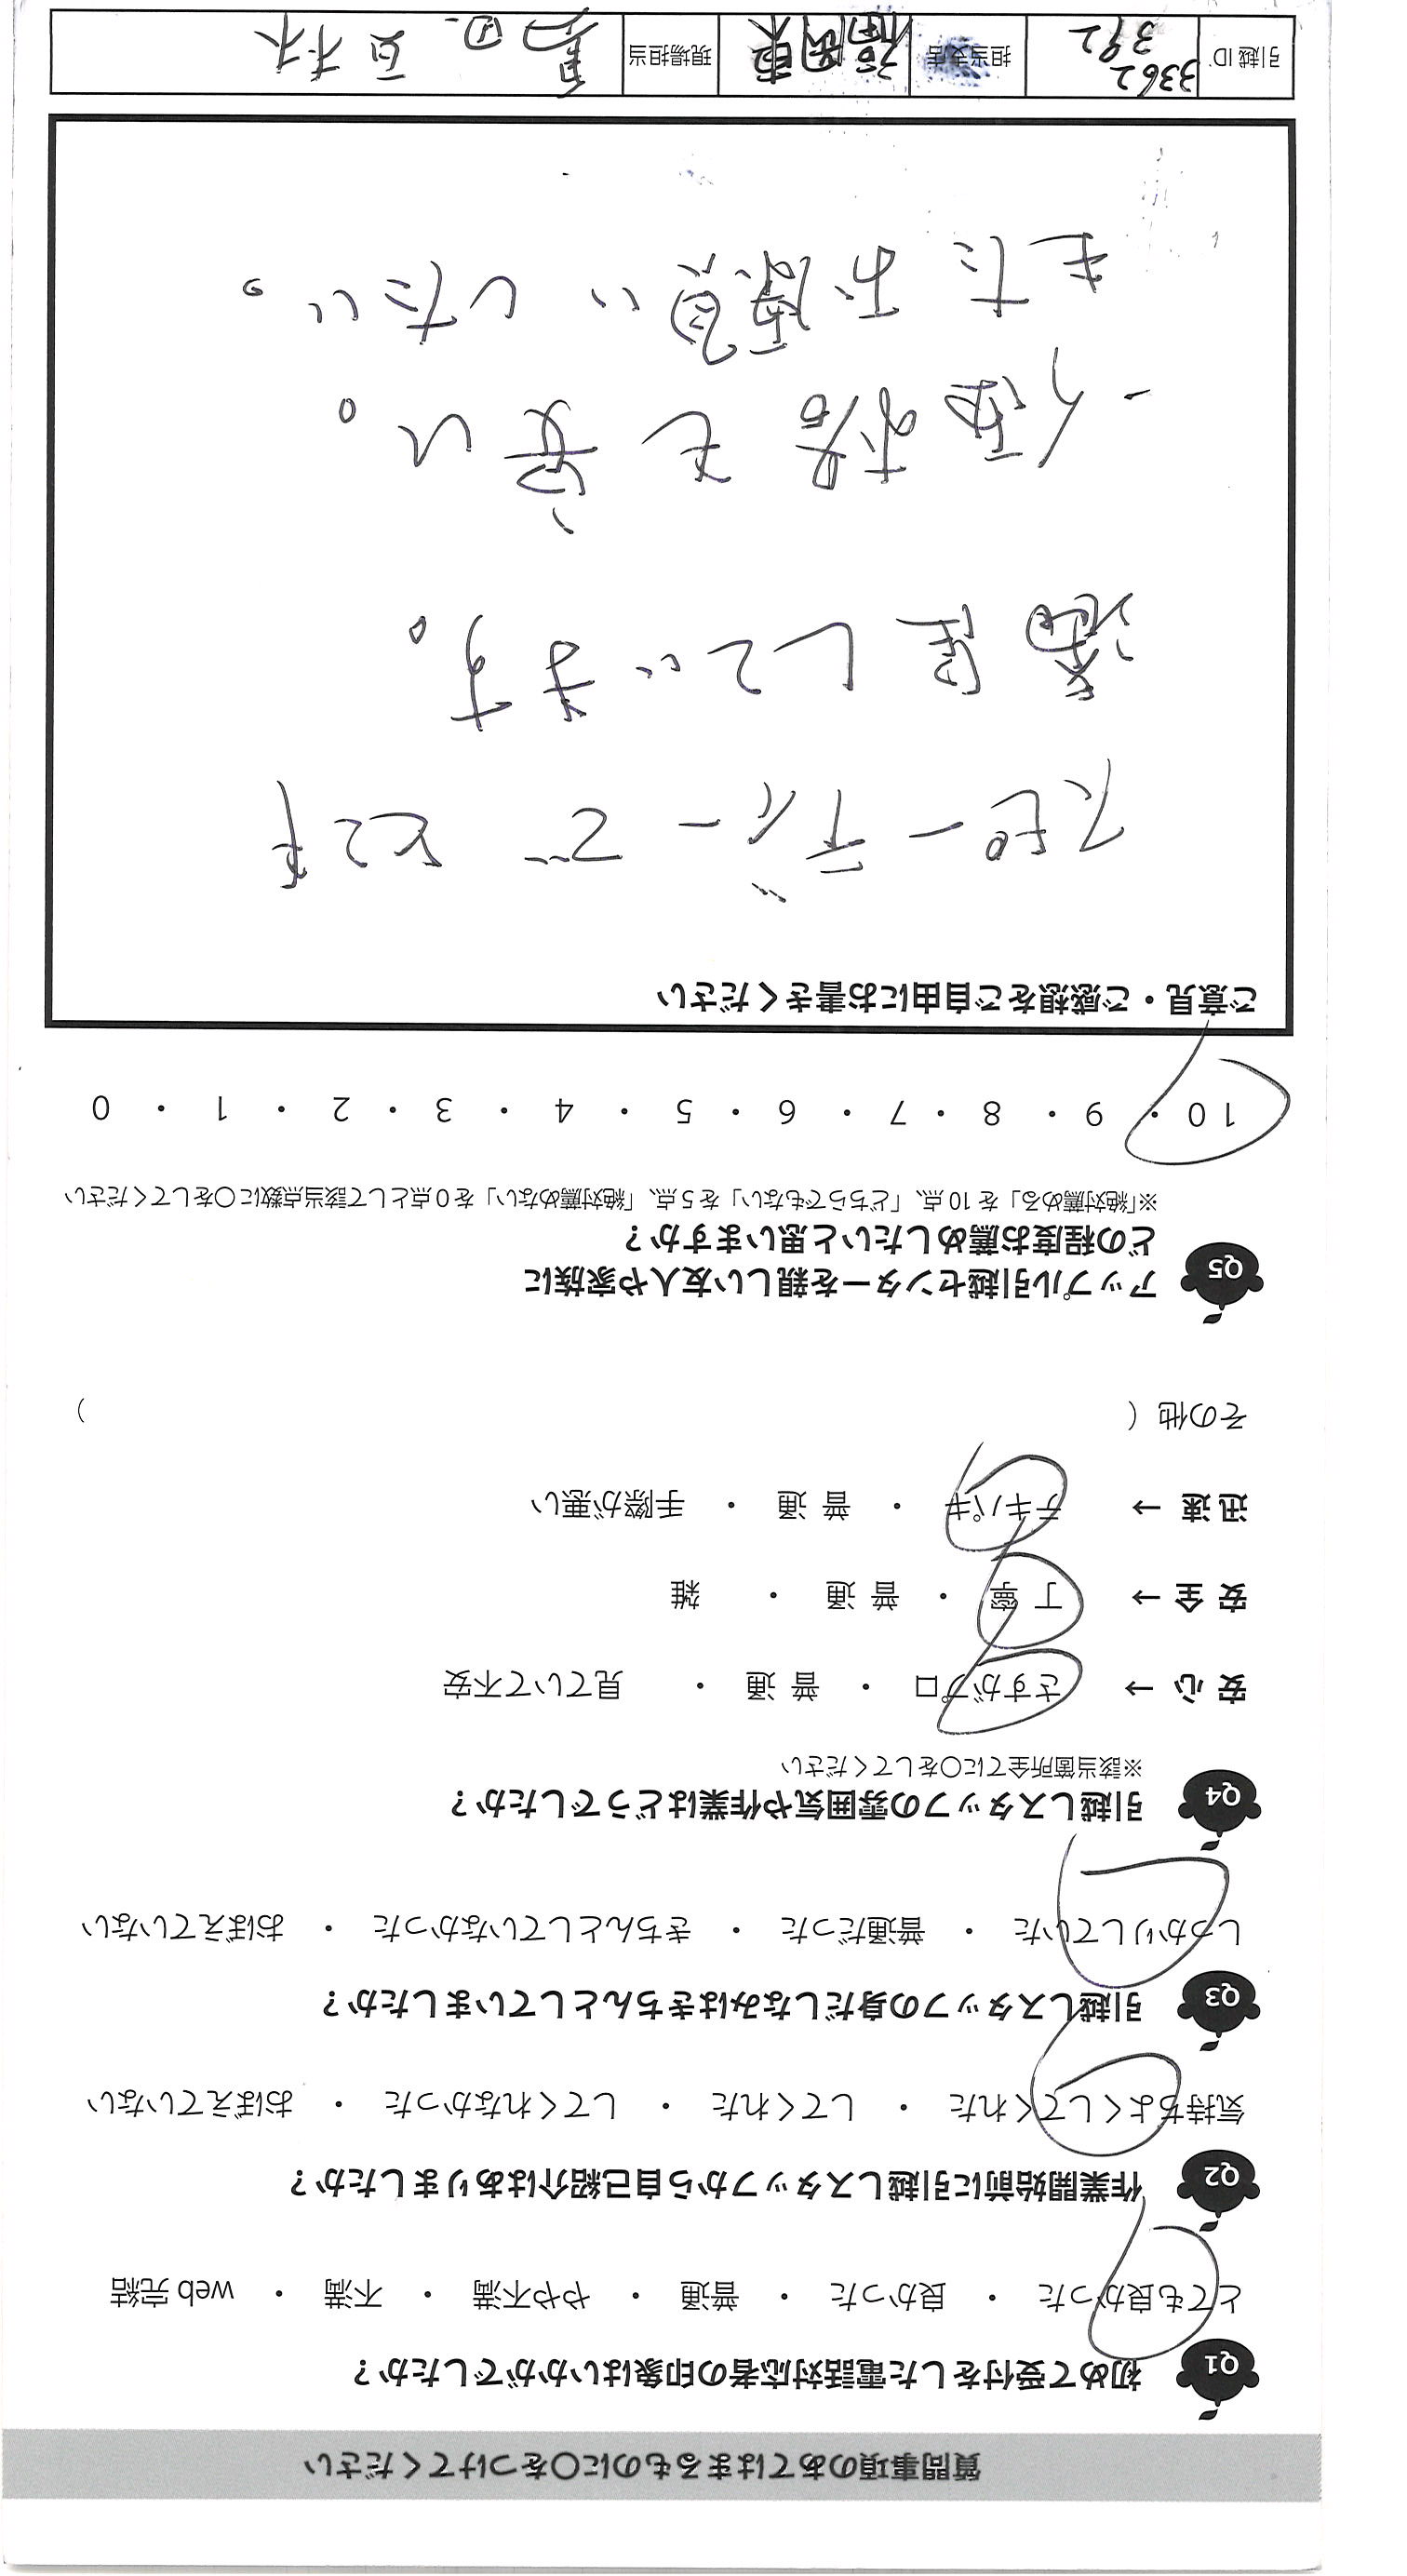 質問事項のあてはまるものに○をつけてください
Q1 初めて受付をした電話対応者の印象はいかがでしたか？
とても良かった ・ 良かった ・ 普通 ・ やや不満 ・ 不満 ・ web 完結
Q2 作業開始前に引越しスタッフから自己紹介はありましたか？
気持ちよくしてくれた ・ してくれた ・ してくれなかった ・ おぼえていない
Q3 引越しスタッフの身だしなみはきちんとしていましたか？
しっかりしていた ・ 普通だった ・ きちんとしていなかった ・ おぼえていない
Q4 引越しスタッフの雰囲気や作業はどうでしたか？
※該当箇所全てに○をしてください
安 心 → さすがプロ ・ 普 通 ・ 見ていて不安
安 全 → 丁 寧 ・ 普 通 ・ 雑
迅 速 → テキパキ ・ 普 通 ・ 手際が悪い
その他（ ）
Q5 アップル引越センターを親しい友人や家族に
どの程度お薦めしたいと思いますか？
※「絶対薦める」を 10 点、「どちらでもない」を 5 点、「絶対薦めない」を 0 点として該当点数に○をしてください
10 ・ 9 ・ 8 ・ 7 ・ 6 ・ 5 ・ 4 ・ 3 ・ 2 ・ 1 ・ 0
ご意見・ご感想をご自由にお書きください
スピーディーで とても
満足しています。
価格も安い。
またお願いしたい。
引越 ID 3362 392 担当支店 福岡東 現場担当